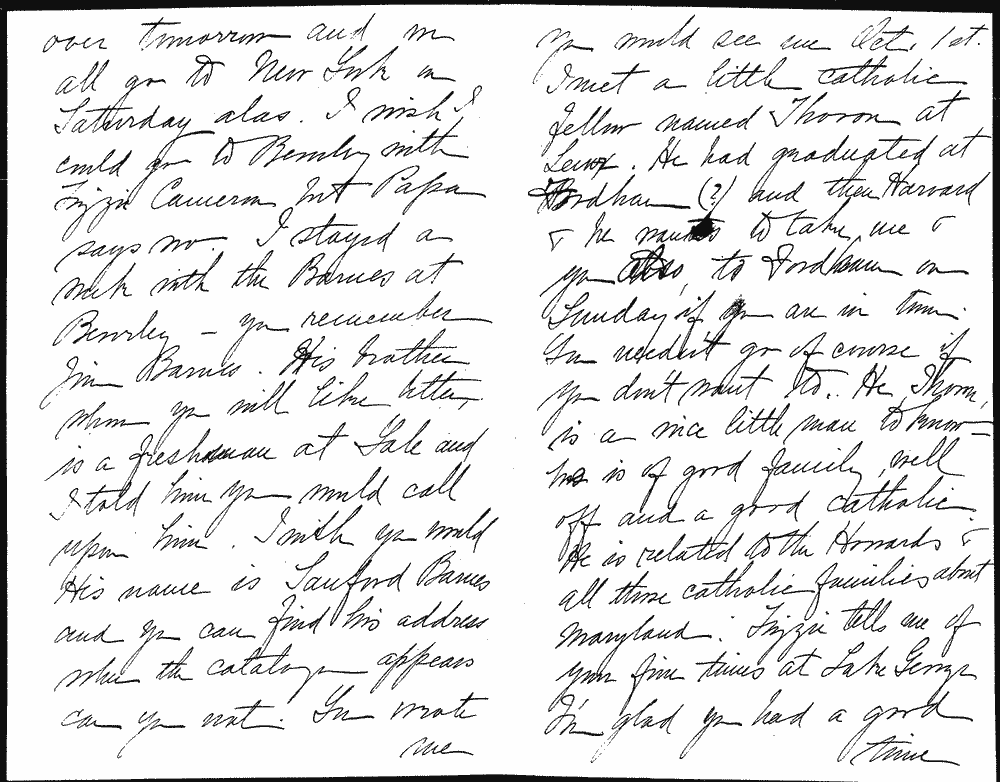 over tomorrow and we
all go to New York on
Saturday alas. I wish I
could go to Beverley with
Lizzie Cameron but Papa
says no. I stayed a
week with the Barnes at
Beverley – you remember
Jim Barnes. His brother
whom you will like better,
is a freshman at Yale and
I told him you would call
upon him. I wish you would
His name is Sanford Barnes
and you can find his address
when the catalogue appears
can you not. You wrote
me
you would see me Oct. 1st.
I met a little catholic
fellow named Thoron at
Lenox. He had graduated at
Fordham (?) and then Harvard
& he wants to take me &
you also, to Fordham on
Sunday if you are in town.
You needn't go of course if
you don't want to. He, Thoron,
is a nice little man to know –
he is of good family, well
off and a good catholic.
He is related to the Howards &
all those catholic families about
Maryland. Lizzie tells me of
your fine times at Lake George
I'm glad you had a good
time